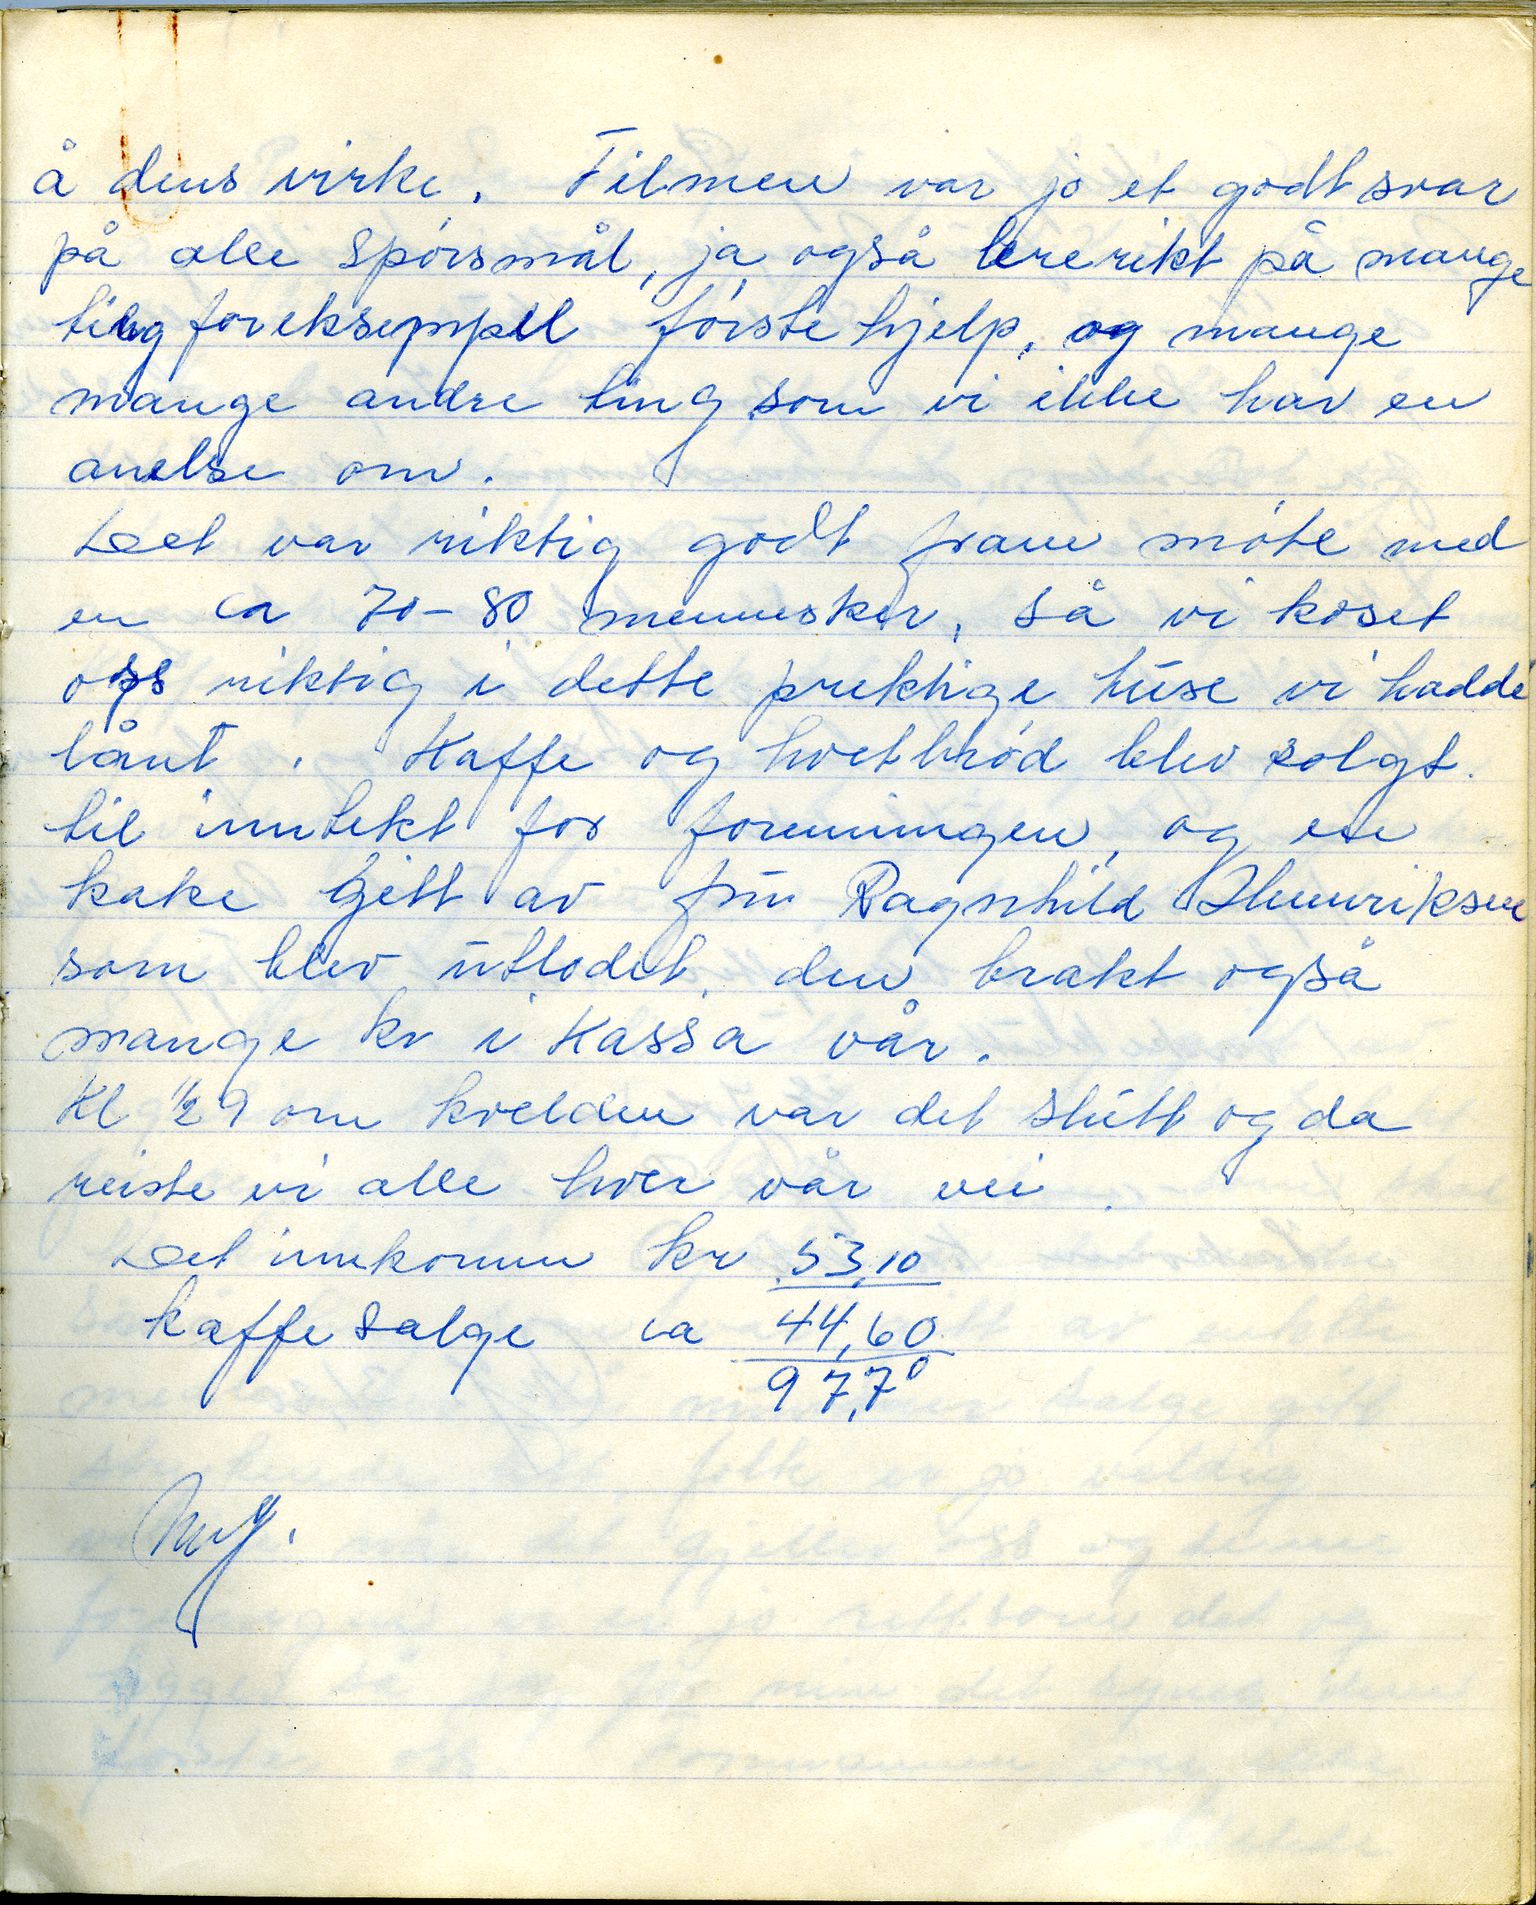 å dens virke. Filmen var jo et godt svar
på alle spørsmål, ja også lererikt på mange
ting foreksempel første hjelp, og mange
mange andre ting som vi ikke har en
anelse om.
Det var riktig godt fram møte med
en ca 70-80 mennesker, så vi koset
oss riktig i dette prektige huse vi hadde
lånt. Kaffe og hvetbrød blev solgt
til inntekt for foreningen, og en
kake gitt av fru Ragnhild Henriksen
som blev utlodet, den brakt også
mange kr i Kassa vår.
Kl 1/2 9 om kvelden var det slutt og da
reiste vi alle hver vår vei.
Det innkomm kr 53,10
kaffe salge ca 44,60
97,70